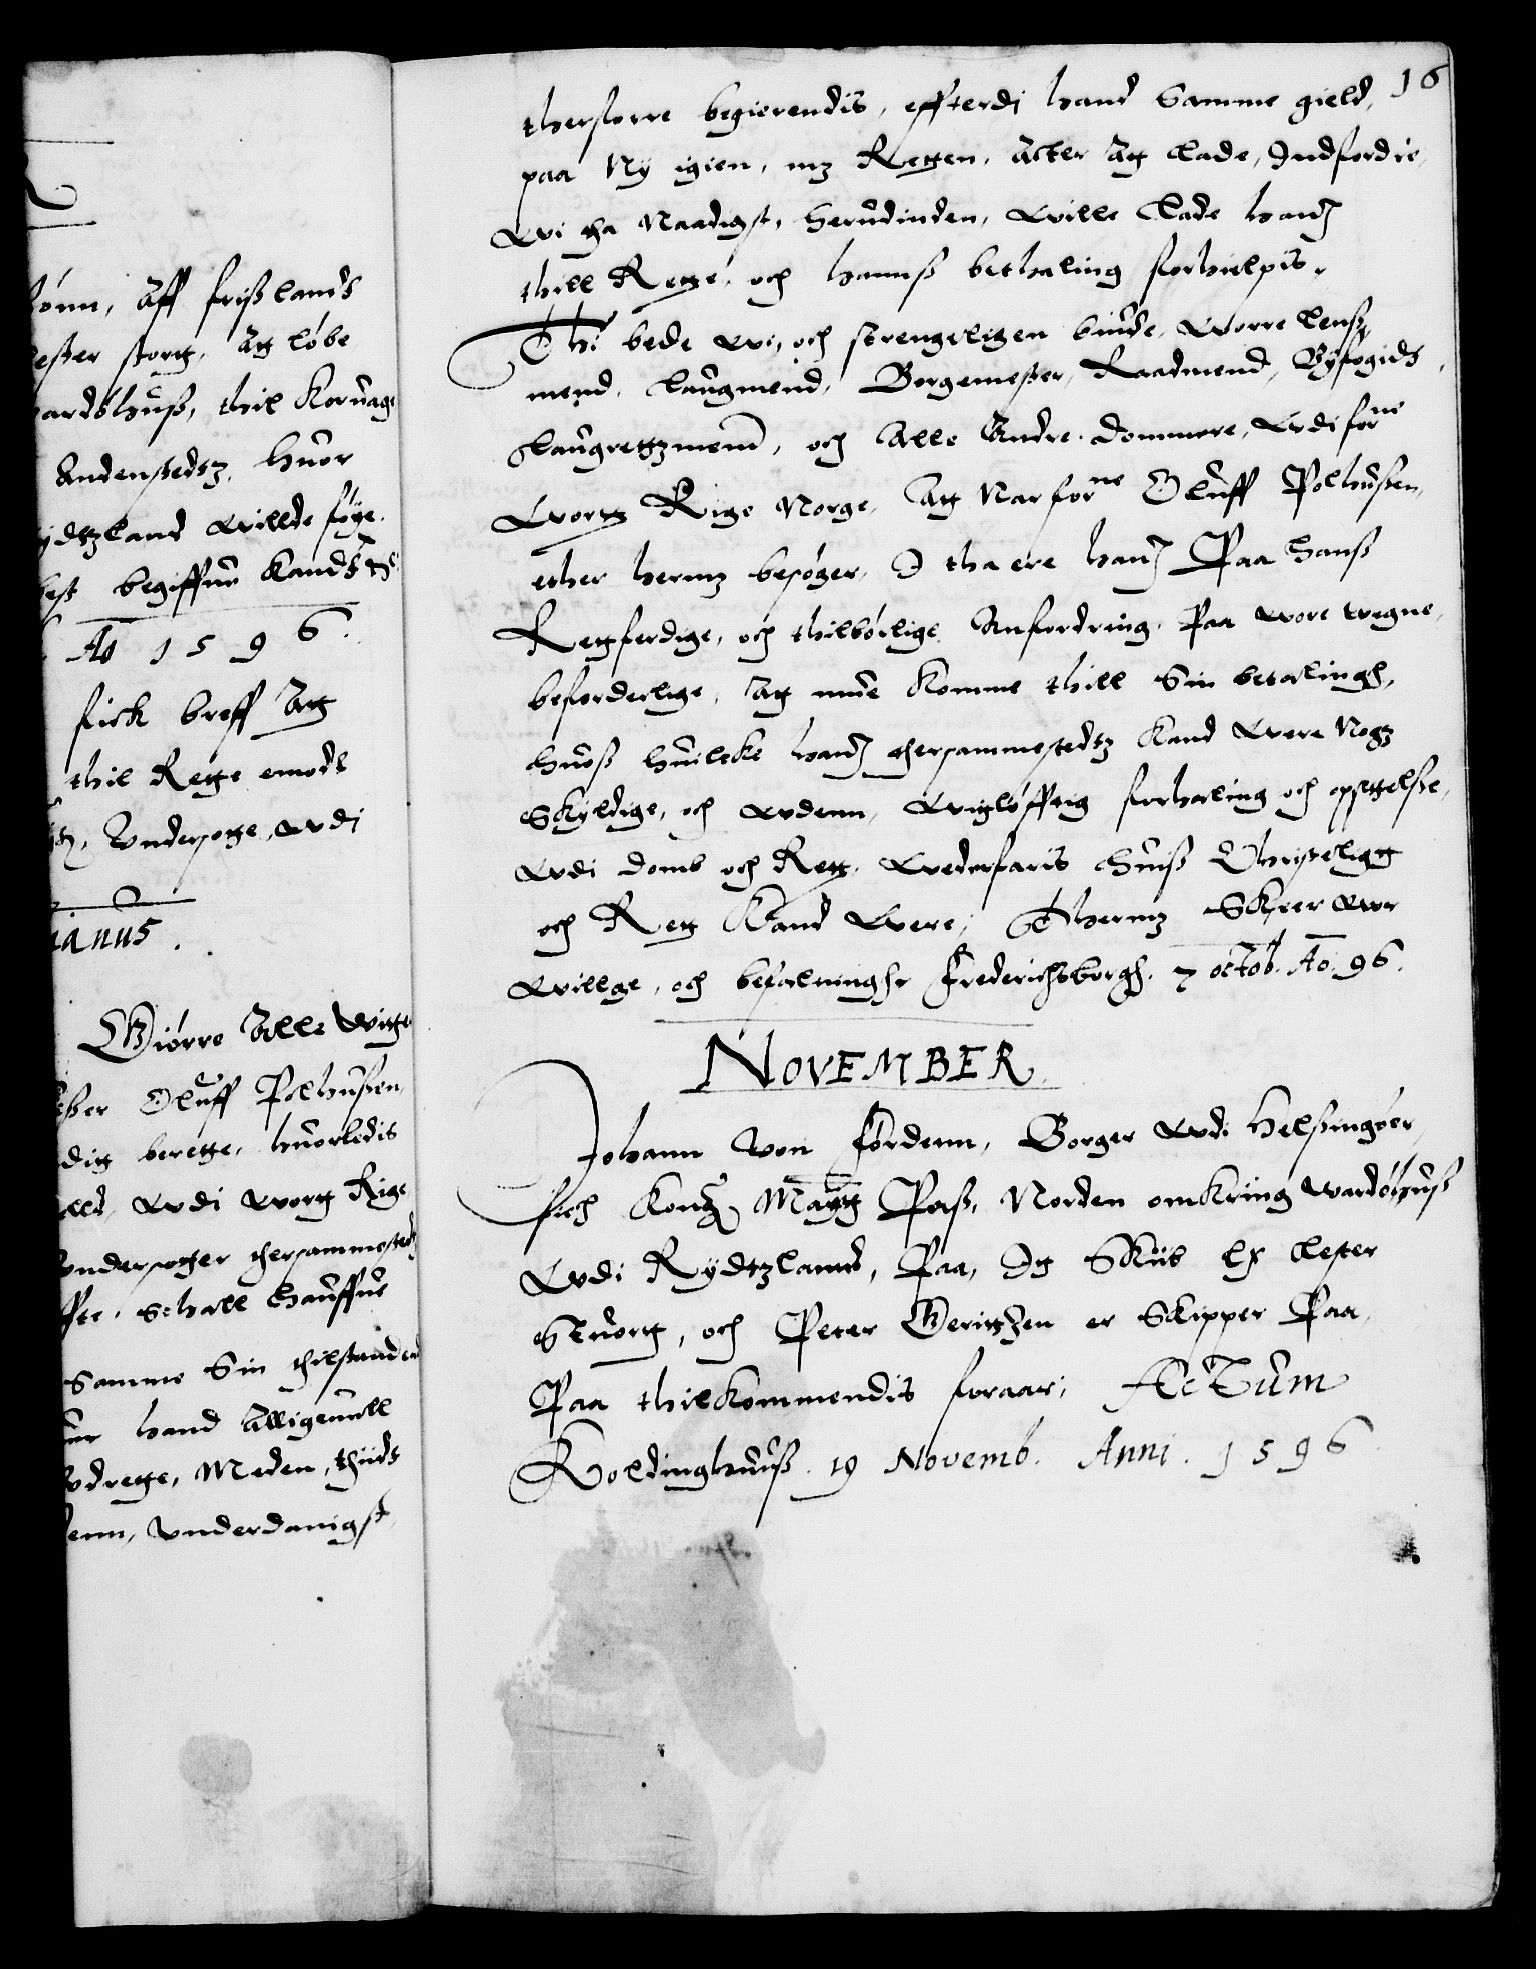 lónn, Aff frißlands
lester storg, Ag løbe
vardøhuß, thil Koruage
Andenstedtz, huor
Rydtzland willde føge
best begiffuer Kandt
Ao 1596.
fick breff Att
thil Rette emodt
Undersotte, wdi
ianus.
Giörre Alle witt
Oluff Polhußen
dig berette, huorledis
wdi wort Rige
vndersotter thersammested
schall hauffue
Samme Sin thilstanden
hand Alligeuell
vdrette, Meden, thiids
enn, vnderdanigst
16
therforre begierendis, effterdi hand Samme gield,
paa Ny igien, mz Retten, Acter Att lade, Indfordre,
Wi tha Naadigst, herudinden, wille lade hand
thill Rette, och hannß bethaling forhielpis.
Thi bede wi, och strengeligen biude, Worre lenß
mend, laugmend, Borgemester, Raadmend, Byfogids
laugrettzmend, och Alle Andre dommere, Wdi forne
Wortt Rige Norge, Att Nar forne Oluff Polhußen,
ether hermz besøger, I tha ere hand Paa hanß
Rettferdige, och thilbørlige Anfordring, Paa wore wegne,
beforderlige, Att mue Komme thill Sin betalingh,
huoß huilcke hand thersammestedtz Kand Were Nogz
Skyldige, och wdenn, Wigløfftig forhaling och opsettelße,
Wdi domb och Rett, Wederfaris huiß Christeligt
och Rett Kand Were, Thermz Skeer wor
Willge, och befalninghr Frederichsborgh. 7 octob. Ao. 96.
NOVEMBER
Johann von Førdenn, Borger Wdi Helßingøer
fich Kong. Maytt Paß, Norden omKring wardøhuß
Wdi Rydtzland, Paa, It Skiib Lx lester
Stuortt, och Peter Gerittzen er Skipper Paa,
Paa thilkommendis foraar, Actum
Koldinghuuß. 19 Novemb. Anni. 1596